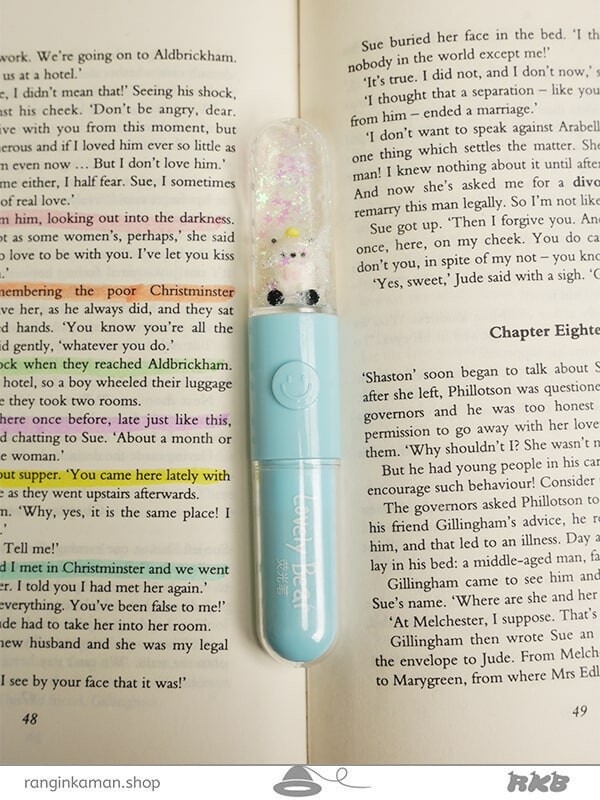 work. We're going on to Aldbrickham.
us at a hotel.'
e, I didn't mean that!' Seeing his shock,
nst his cheek. 'Don't be angry, dear.
ive with you from this moment, but
nerous and if I loved him ever so little as
m even now … But I don't love him.'
me either, I half fear. Sue, I sometimes
of real love.'
m him, looking out into the darkness.
ot as some women's, perhaps,' she said
o love to be with you. I've let you kiss
.'
membering the poor Christminster
ve her, as he always did, and they sat
d hands. 'You know you're all the
id gently, 'whatever you do.'
ock when they reached Aldbrickham.
hotel, so a boy wheeled their luggage
e they took two rooms.
here once before, late just like this,
d chatting to Sue. 'About a month or
e woman.'
out supper. 'You came here lately with
e as they went upstairs afterwards.
n. 'Why, yes, it is the same place! I
.'
Tell me!'
d I met in Christminster and we went
er. I told you I had met her again.'
everything. You've been false to me!'
ude had to take her into her room.
new husband and she was my legal
I see by your face that it was!'
48
Lovely Bear
荧光笔
Sue buried her face in the bed. 'I th
nobody in the world except me!'
'It's true. I did not, and I don't now,' s
'I thought that a separation – like you
from him – ended a marriage.'
'I don't want to speak against Arabell
one thing which settles the matter. She
man! I knew nothing about it until after
And now she's asked me for a divo
remarry this man legally. So I'm not like
Sue got up. 'Then I forgive you. An
once, here, on my cheek. You do ca
don't you, in spite of my not – you kno
'Yes, sweet,' Jude said with a sigh. 'G
Chapter Eighte
'Shaston' soon began to talk about S
after she left, Phillotson was questione
governors and he was too honest
permission to go away with her love
them. 'Why shouldn't I? She wasn't m
But he had young people in his car
encourage such behaviour! Consider
The governors asked Phillotson to
his friend Gillingham's advice, he re
him, and that led to an illness. Day a
lay in his bed: a middle-aged man, fa
Gillingham came to see him and
Sue's name. 'Where are she and her
'At Melchester, I suppose. That's
Gillingham then wrote Sue an
the envelope to Jude. From Melch
to Marygreen, from where Mrs Edl
49
ranginkaman.shop
RKB